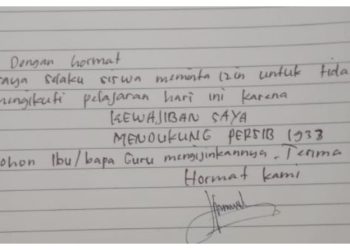 Dengan hormat
saya selaku siswa meminta izin untuk tida
mengikuti pelajaran hari ini karena
KEWAJIBAN SAYA
MENDUKUNG PERSIB 1933
ohon Ibu/bapa Guru mengijinkannya. Terima
Hormat kami